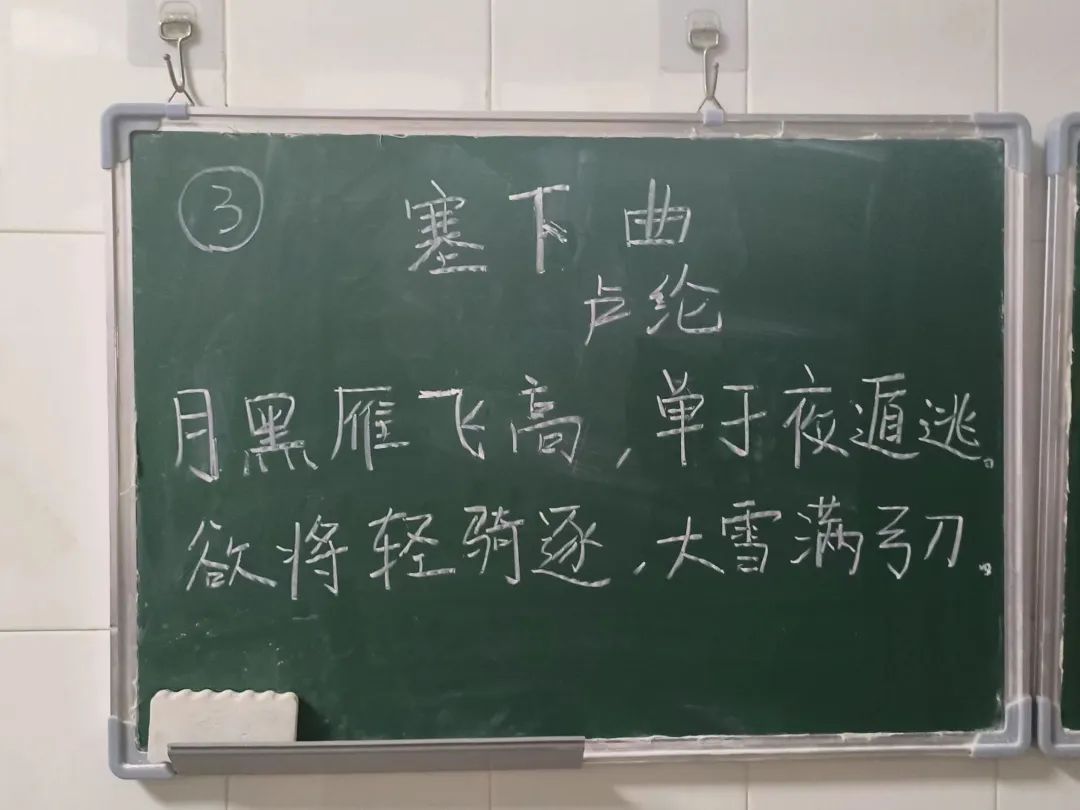 ③ 塞下曲
卢纶
月黑雁飞高,单于夜遁逃。
欲将轻骑逐,大雪满弓刀。